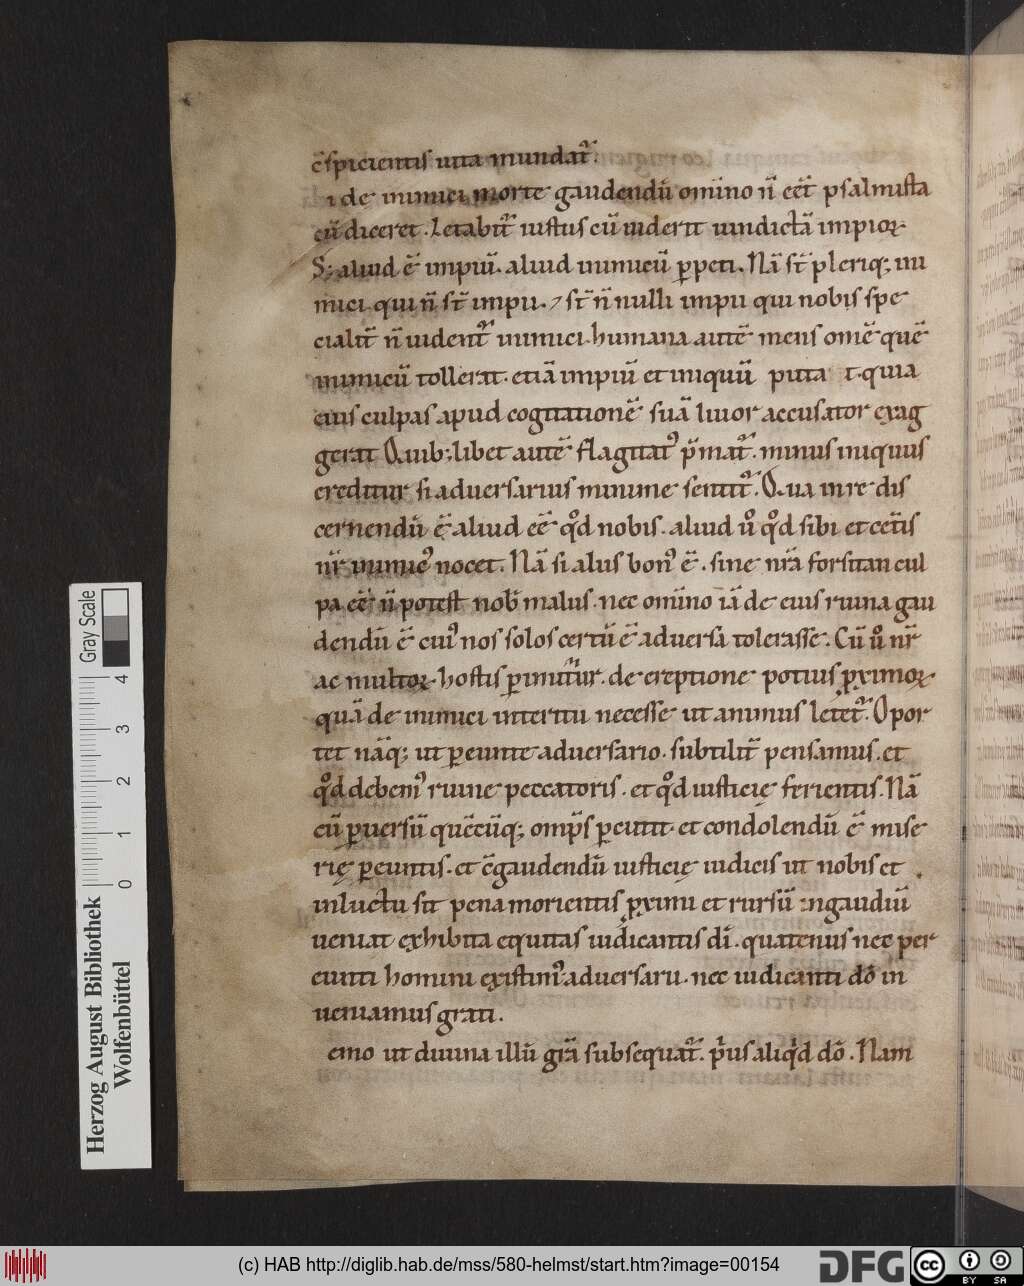 c̄spicientis uita mundat᷑.
i de inimici morte gaudendū omīno n̄ eēt psalmista
cū diceret. Letabit᷑ iustus cū uiderit uindictā impioꝝ
S; aliud ē impiū. aliud inimicū ꝑpeti. Nā st̄ pleriq; ini
mici qui n̄ st̄ impii. ⁊ st̄ n̄nulli impii qui nobis spe
cialit̄ n̄ uident᷑ inimici. humana autē mens om̄ē quē
inimicū tollerat. etiā impiū et iniquū puta t. quia
eius culpas apud cogitationē suā liuor accusator exag
gerat Quib;libet autē flagitiis p̄mat᷑. minus iniquus
creditur si aduersarius minime sentit᷑. Qua in re dis
cernendū ē aliud eē qd̊ nobis. aliud ů qd̊ sibi et cet̄is
nr̄ inimic᷒ nocet. Nā si aliis bon᷒ ē. sine nr̄a forsitan cul
pa eē n̄ potest nob̄ malus. nec omīno iā de eius ruina gau
dendū ē cui᷒ nos solos certū ē aduersa tolerasse. Cū ů nr̄
ac multoꝝ hostis ꝑimitur. de ereptione potius ꝓximoꝝ
quā de inimici interitu necesse ut animus letet᷑. Opor
tet nāq; ut ꝑeunte aduersario. subtilit̄ pensamus. et
qd̊ debem᷒ ruine peccatoris. et qd̊ iusticię ferientis. Nā
cū ꝑuersū quēcūq; omp̄s ꝑcutit. et condolendū ē mise
rię ꝑeuntis. et c̄gaudendū iusticię iudicis ut nobis et
inluctu sit pena morientis ꝓximi et rursū ingaudiū
ueniat exhibita equitas iudicantis dī. quatenus nec per
eunti homini existim᷒ aduersarii. nec iudicanti dō in
ueniamus grati.
emo ut diuina illū grā subsequat᷑. p̄us aliqd̊ dō. Nam
Gray Scale
0 1 2 3 4
Herzog August Bibliothek
Wolfenbüttel
(c) HAB http://diglib.hab.de/mss/580-helmst/start.htm?image=00154
DFG
cc BY SA